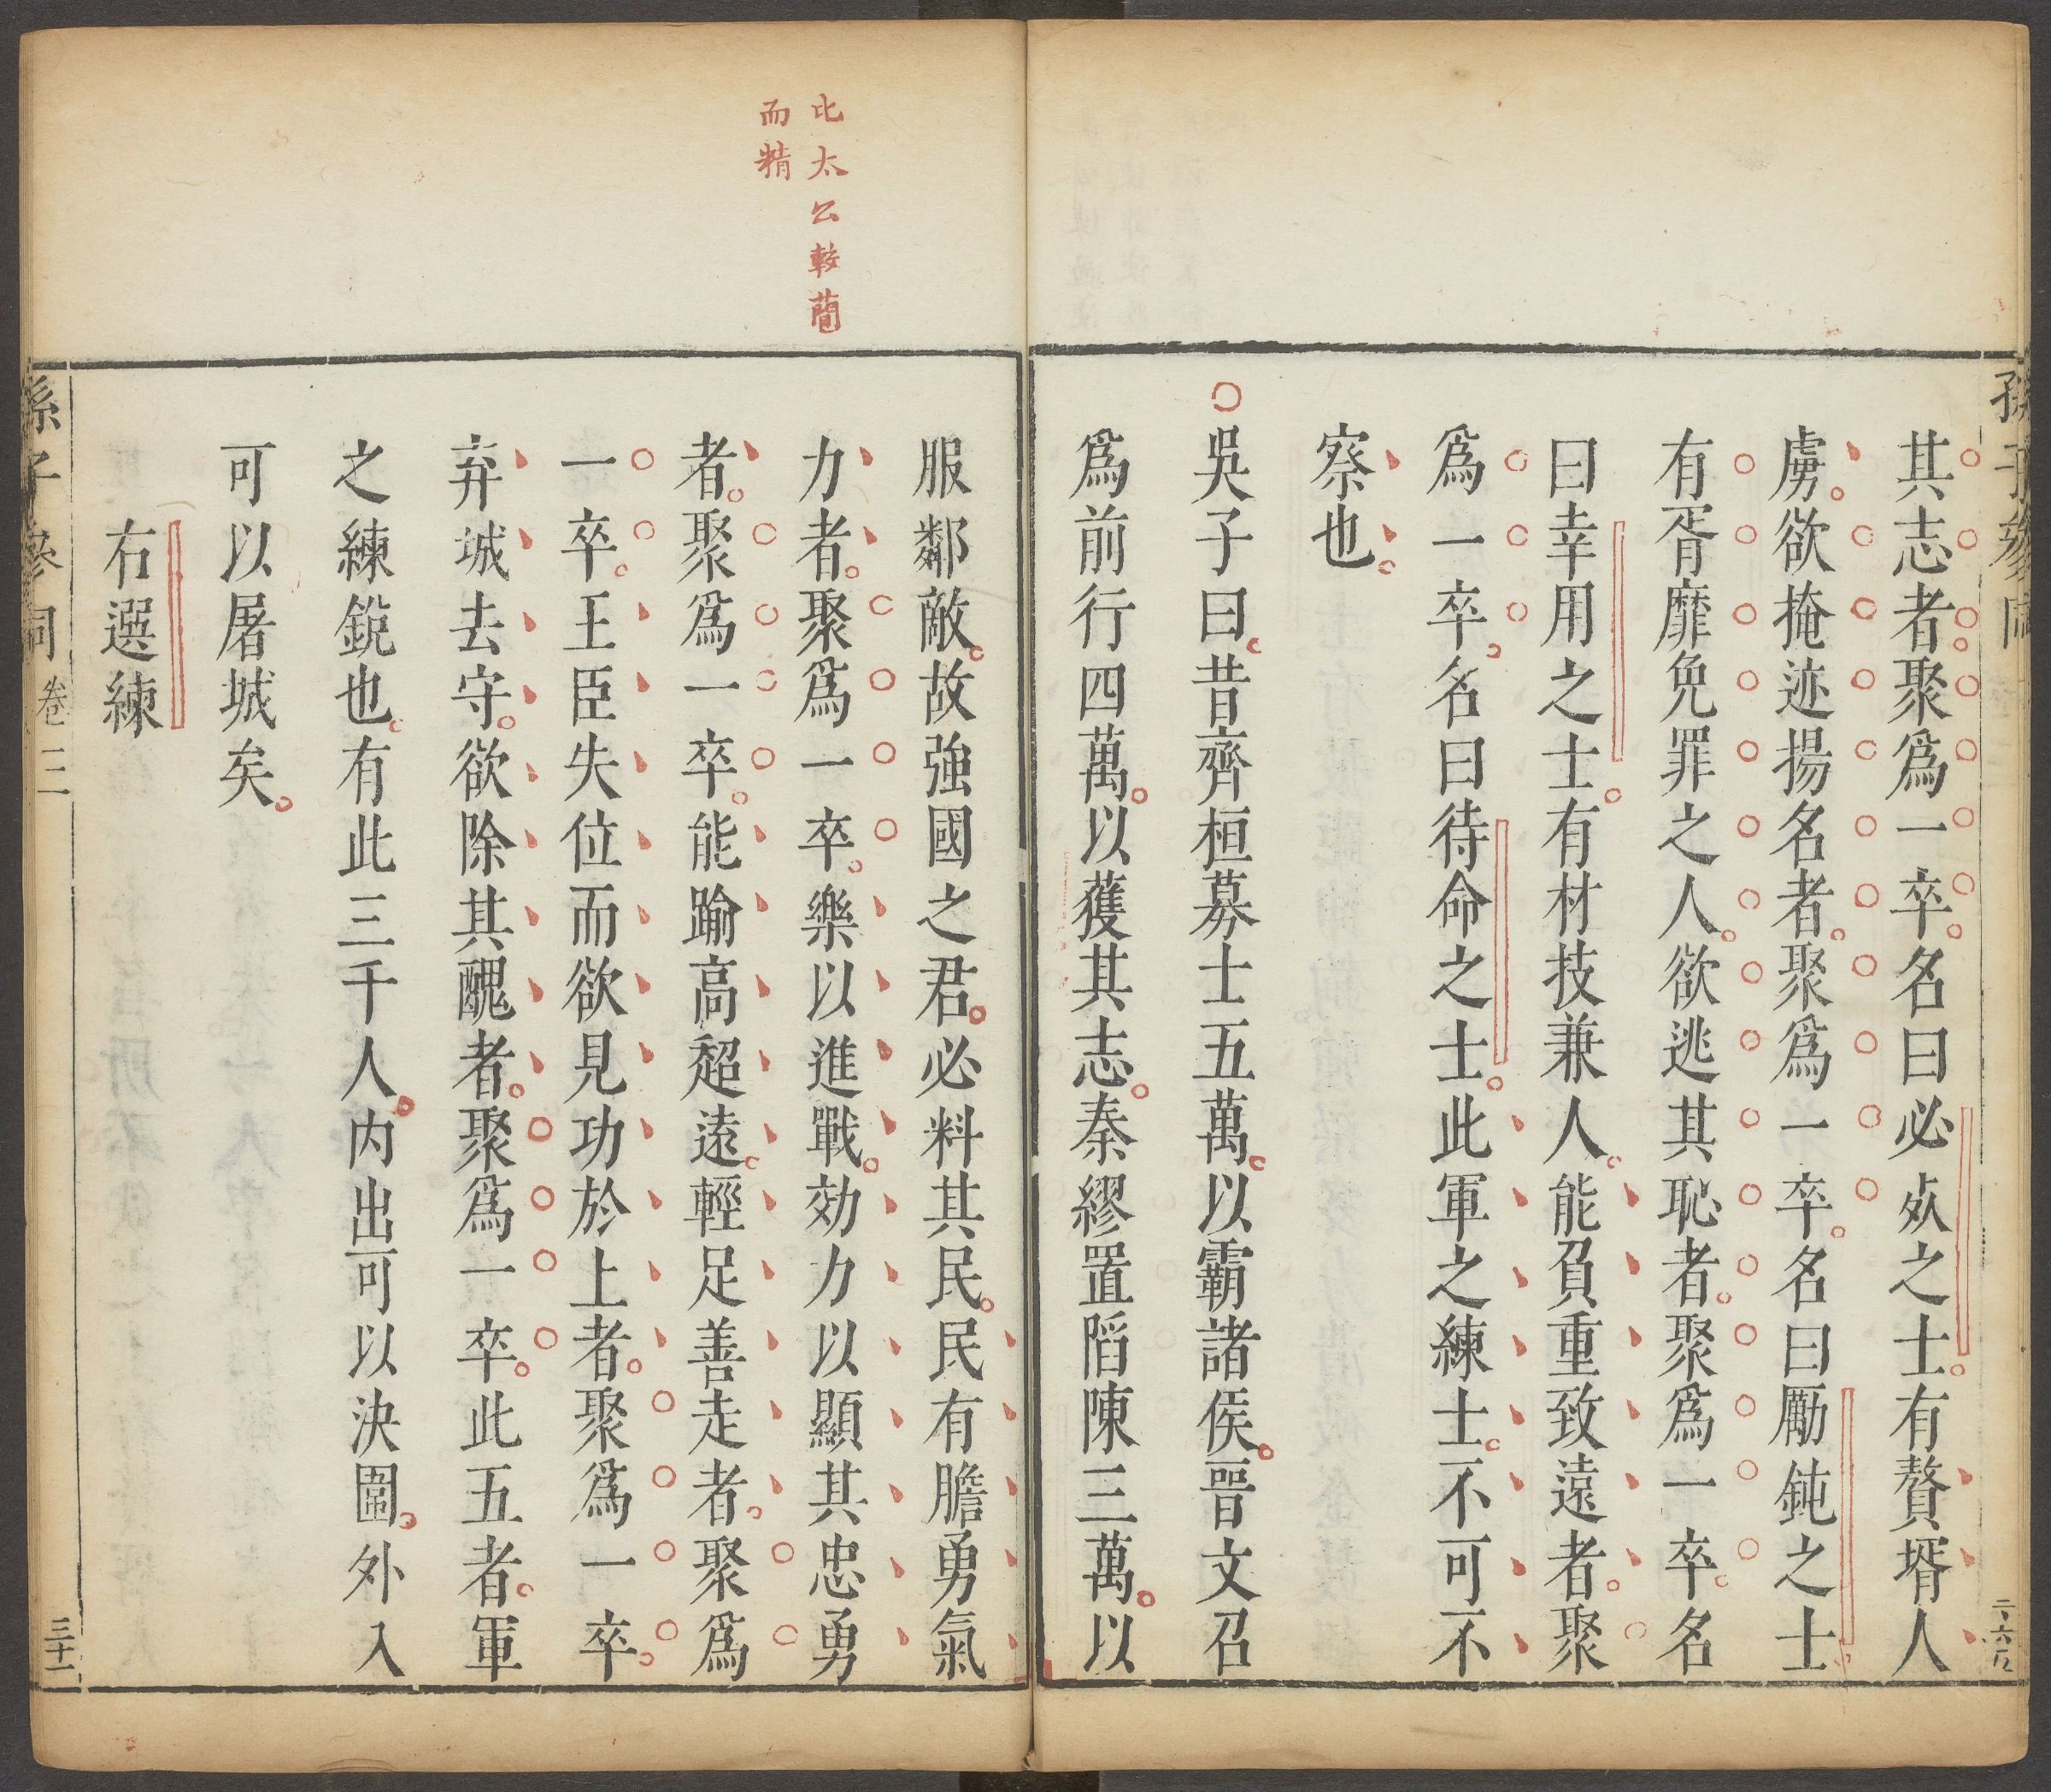 孫子參同
其志者聚爲一卒名曰必死之士有贅壻人
虜欲掩迹揚名者聚爲一卒名曰勵鈍之士
有胥靡免罪之人欲逃其恥者聚爲一卒名
曰幸用之士有材技兼人能負重致遠者聚
爲一卒名曰待命之士此軍之練士不可不
察也
吳子曰昔齊桓募士五萬以霸諸侯晉文召
爲前行四萬以獲其志秦繆置陷陳三萬以
比太公較蕳
而精
服鄰敵故強國之君必料其民民有膽勇氣
力者聚爲一卒樂以進戰効力以顯其忠勇
者聚爲一卒能踰高超遠輕足善走者聚爲
一卒王臣失位而欲見功於上者聚爲一卒
弃城去守欲除其醜者聚爲一卒此五者軍
之練銳也有此三千人内出可以決圍外入
可以屠城矣
右選練
孫子參同 卷三 三十一